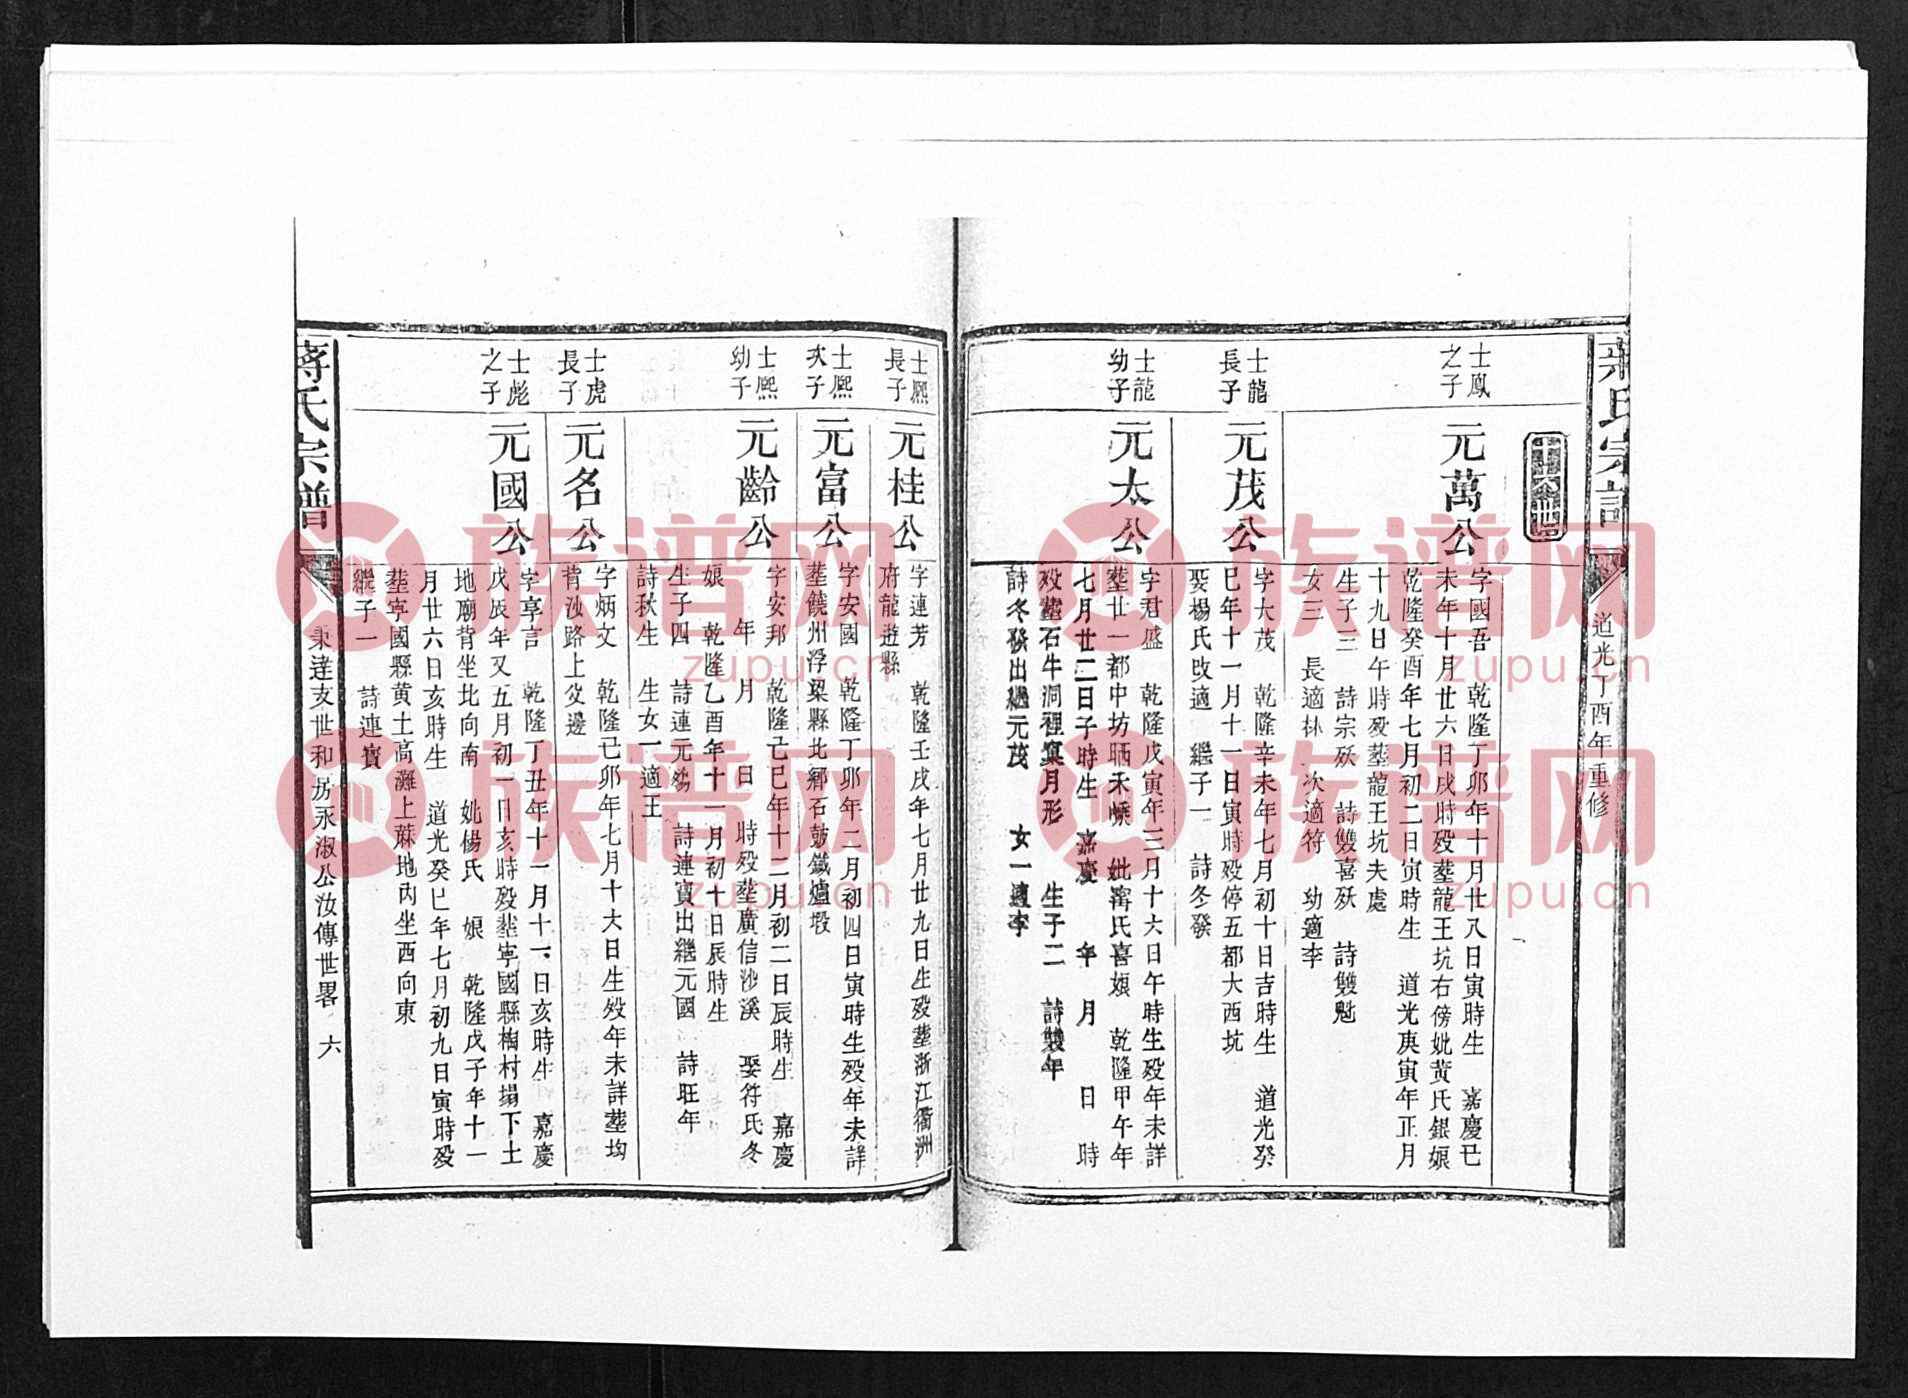 蔣氏宗譜
道光丁酉年重修
士鳳
之子
元萬公
字國吾 乾隆丁卯年十月廿八日寅時生 嘉慶己
未年十月廿六日戌時歿塟龍王坑右傍妣黃氏銀娘
乾隆癸酉年七月初二日寅時生 道光庚寅年正月
十九日午時歿塟龍王坑夫處
生子三 詩宗殀 詩雙喜殀 詩雙魁
女三 長適林 次適符 幼適李
士龍
長子
元茂公
字大茂 乾隆辛未年七月初十日吉時生 道光癸
巳年十一月十一日寅時歿停五都大西坑
娶楊氏改適 繼子一 詩冬發
士龍
幼子
元太公
字君盛 乾隆戊寅年三月十六日午時生歿年未詳
塟廿一都中坊晒禾 妣甯氏喜娘 乾隆甲午年
七月廿二日子時生 嘉慶 年 月 日 時
歿塟石牛洞裡窠月形 生子二 詩雙年
詩冬發出繼元茂 女一適李
士熙
長子
元桂公
字連芳 乾隆壬戌年七月廿九日生歿塟浙江衢洲
府龍遊縣
士熙
次子
元富公
字安國 乾隆丁卯年二月初四日寅時生歿年未詳
塟饒州浮梁縣北鄉石鼓鐵爐塅
士熙
幼子
元齡公
字安邦 乾隆己巳年十二月初二日辰時生 嘉慶
年 月 日 時歿塟廣信沙溪 娶符氏冬
娘 乾隆乙酉年十一月初十日辰時生
生子四 詩連元殤 詩連寶出繼元國 詩旺年
詩秋生 生女一適王
士虎
長子
元名公
字炳文 乾隆己卯年七月十六日生歿年未詳塟坳
背浊路上坟邊
士彪
之子
元國公
字享言 乾隆丁丑年十一月十一日亥時生 嘉慶
戊辰年又五月初一日亥時歿塟寧國縣梅村塌下土
地廟背坐北向南 妣楊氏 娘 乾隆戊子年十一
月廿六日亥時生 道光癸巳年七月初九日寅時歿
塟寧國縣黃土高灘上蔴地內坐西向東
繼子一 詩連寶
蔣氏宗譜
秉達支世和房永淑公汝傳世畧 六
族谱网
zupu.cn
族谱网
zupu.cn
族谱网
zupu.cn
族谱网
zupu.cn